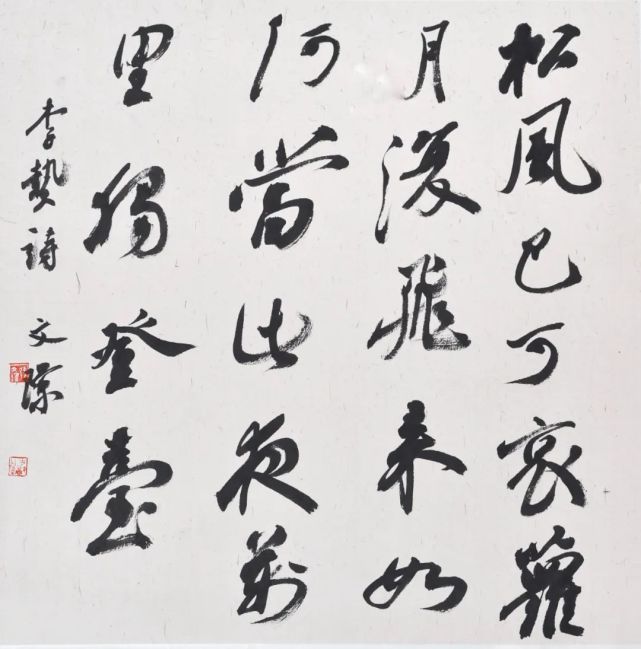 松風已可哀蘿
月復飛來如
何當此夜萬
里獨登臺
李贄詩 文